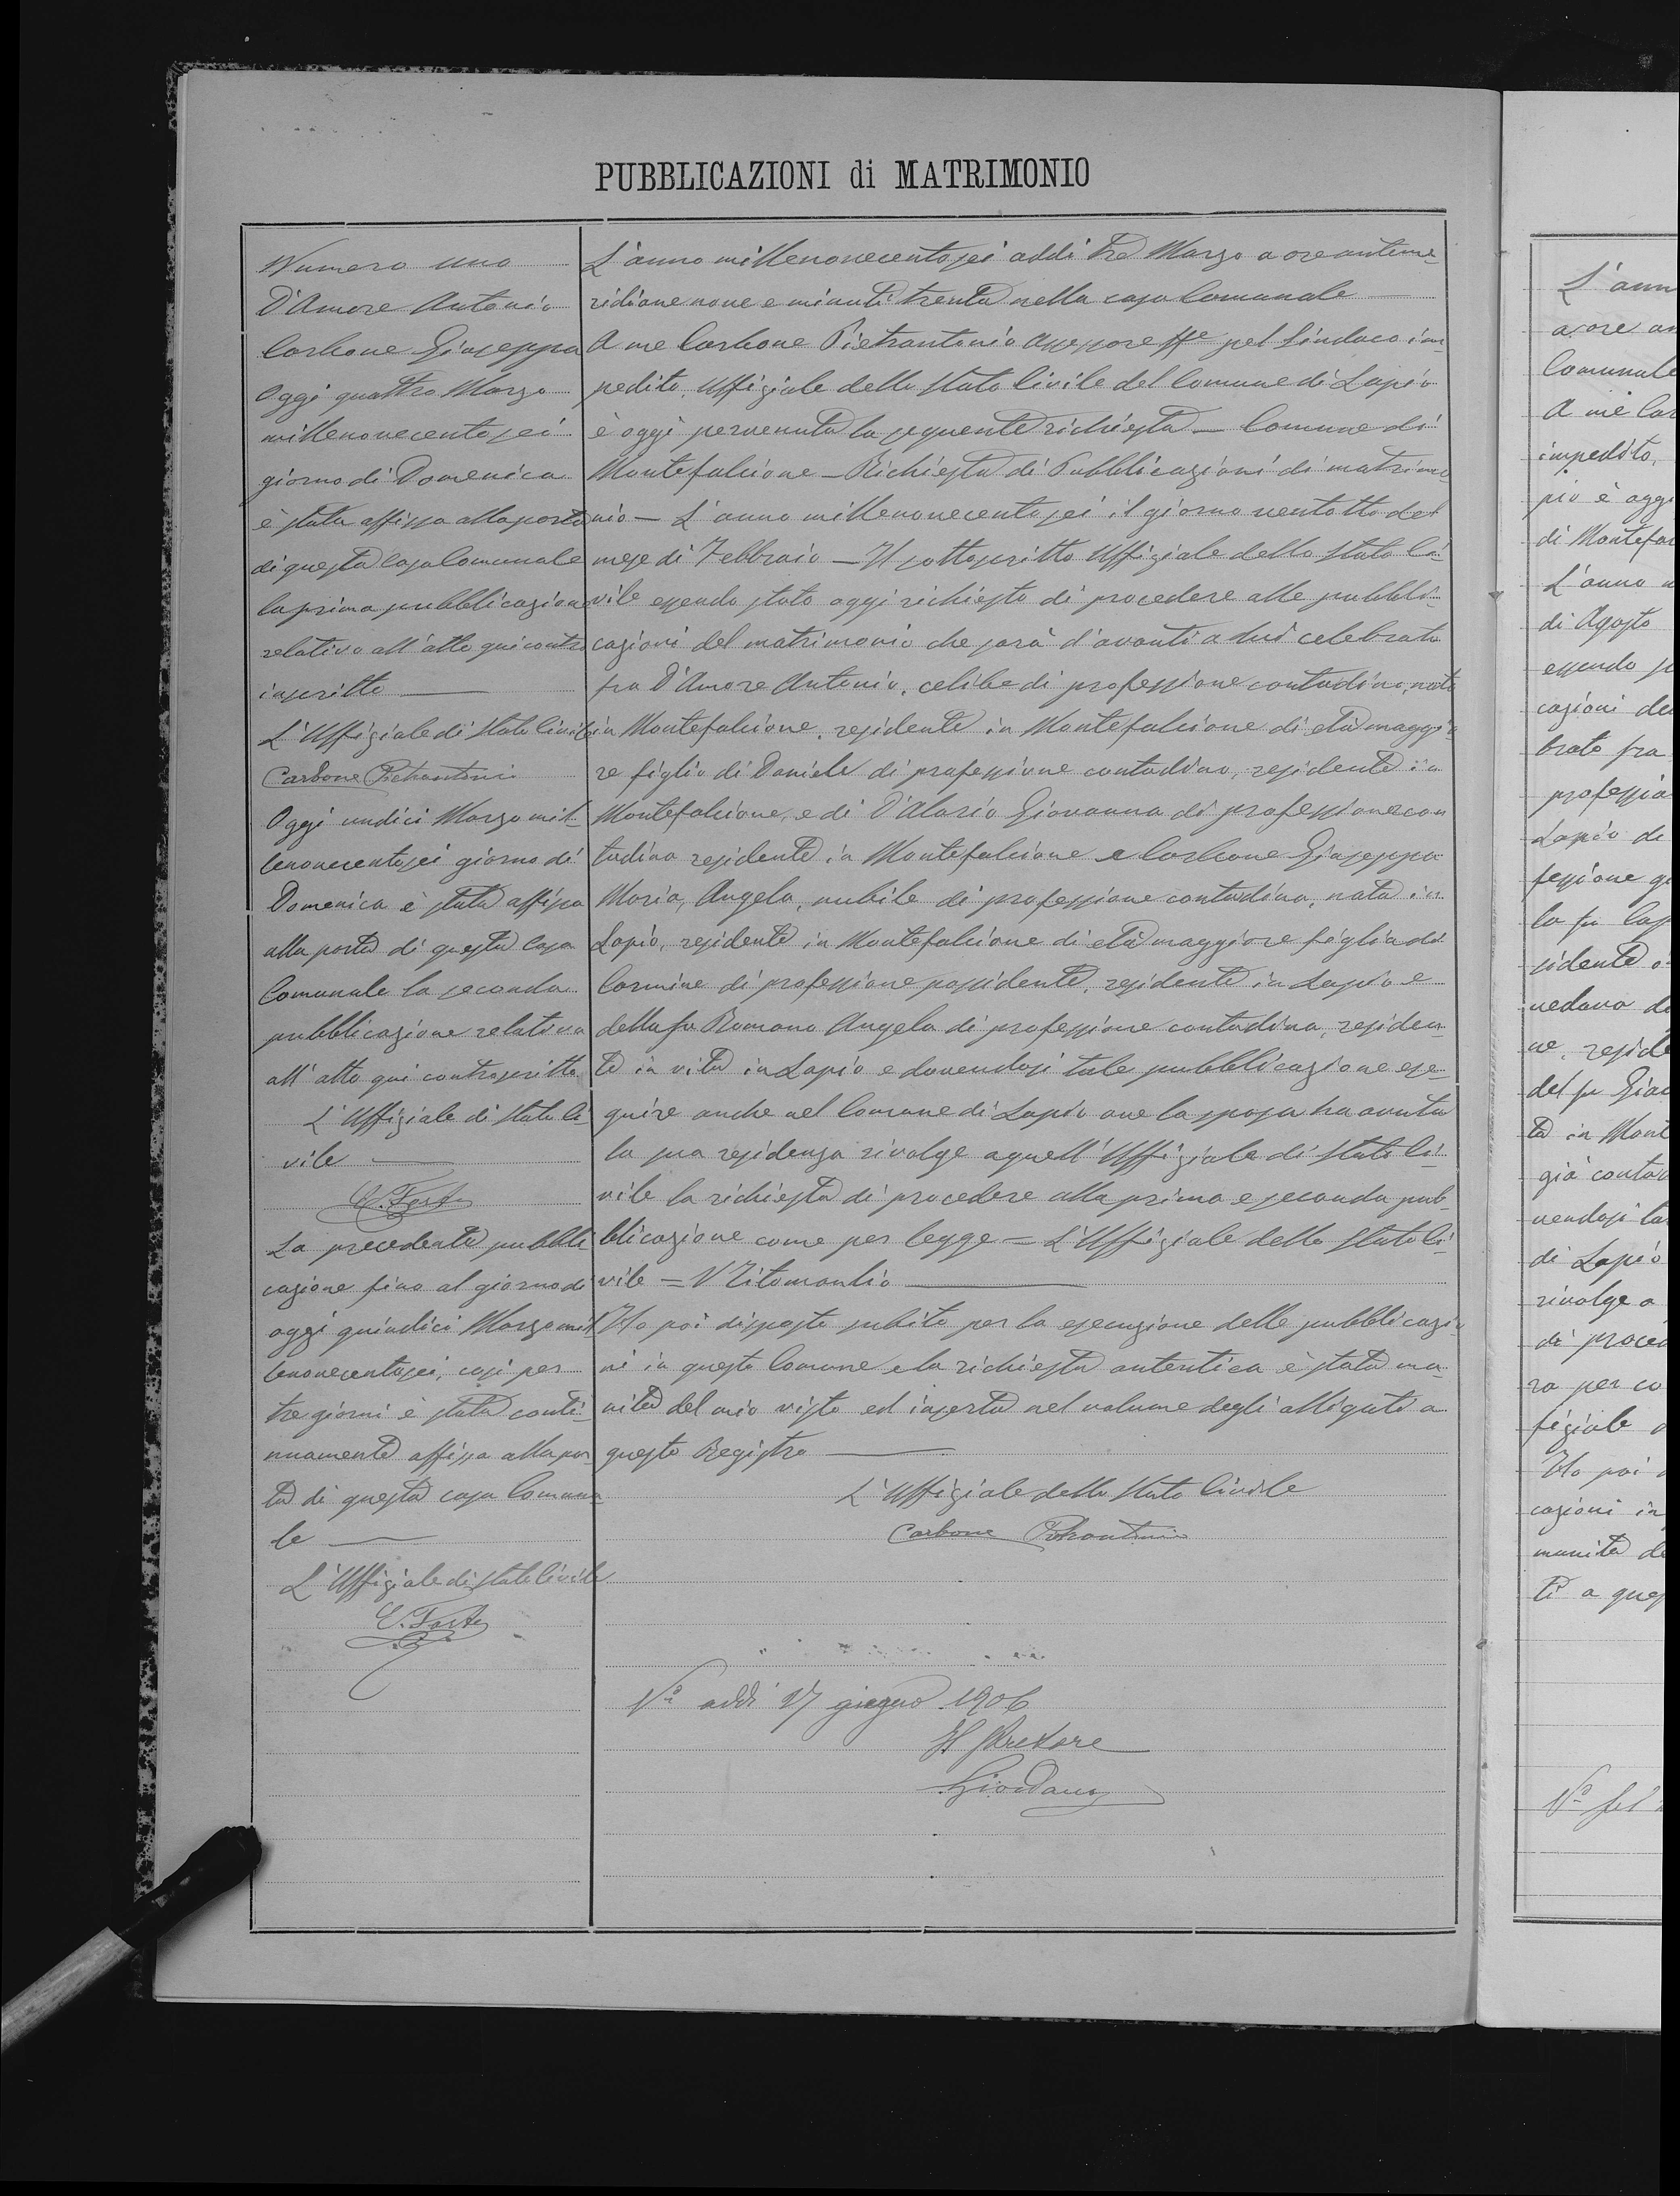 PUBBLICAZIONI di MATRIMONIO
Numero uno
D'Amore Antonio
Carbone Giuseppa
Oggi quattro Marzo
millenovecentosei
giorno di Domenica
è stata affissa alla porta
di questa Casa Comunale
la prima pubblicazione
relativa all'atto qui contro
inscritto —
L'Uffiziale di Stato Civile
Carbone Pietrantonio
Oggi undici Marzo mil-
lenovecentosei giorno di
Domenica è stata affissa
alla porta di questa Casa
Comunale la seconda
pubblicazione relativa
all'atto qui controscritto
L'Uffiziale di Stato Ci
vile —
E. Forte
La precedente pubbli
cazione fino al giorno di
oggi quindici Marzo mil
lenovecentosei, cosi per
tre giorni è stata conti-
nuamente affissa alla por-
ta di questa casa Comuna
le —
L'Uffiziale di Stato Civile
E. Forte
L'anno millenovecentosei addi tre Marzo a ore anteme-
ridiane nove e minuti trenta nella casa Comunale —
A me Carbone Pietrantonio Assessore ff.e pel Sindaco im-
pedito, Uffiziale dello Stato Civile del Comune di Lapio
è oggi pervenuta la seguente richiesta — Comune di
Montefalcione — Richiesta di Pubblicazioni di matrimo-
nio — L'anno millenovecentosei il giorno ventotto del
mese di Febbraio — Il sottoscritto Uffiziale dello Stato Ci-
vile essendo stato oggi richiesto di procedere alle pubbli-
cazioni del matrimonio che sarà d'avanti a lui celebrato
fra D'Amore Antonio, celibe di professione contadino, nato
in Montefalcione, residente in Montefalcione di età maggio
re figlio di Daniele di professione contadino, residente in
Montefalcione, e di D'Alasio Giovanna di professione con
tadina residente in Montefalcione e Carbone Giuseppa
Maria, Angela, nubile di professione contadina, nata in
Lapio, residente in Montefalcione di età maggiore figlia di
Carmine di professione possidente, residente in Lapio e
della fu Romano Angela di professione contadina, residen-
te in vita in Lapio e dovendosi tale pubblicazione ese-
guire anche nel Comune di Lapio ove la sposa ha avuta
la sua residenza rivolge a quell'Uffiziale di Stato Ci-
vile la richiesta di procedere alla prima e seconda pub-
blicazione come per legge = L'Uffiziale dello Stato Ci-
vile = V Titomanlio —
Ho poi disposto subito per la esecuzione delle pubblicazio-
ni in questo Comune e la richiesta autentica è stata mu-
nita del mio visto ed inserta nel volume degli alligati a
questo Registro —
L'Uffiziale dello Stato Civile
Carbone Pietrantonio
V° addì 17 giugno 1906
Il Pretore
Giordano
L'ann
a ore an
Comunale
A me Car
impedito,
pio è oggi
di Montefal
L'anno
di Agosto
essendo
cazioni del
brato fra
professio
Lapio di
fessione
la fu
sidente
vedova
ne, reside
del fu Giac
ta in Mont
già contad
vendosi
di Lapio
rivolge a
di proced
ra per co
fiziale
Ho poi
cazioni in
munita de
ti a ques